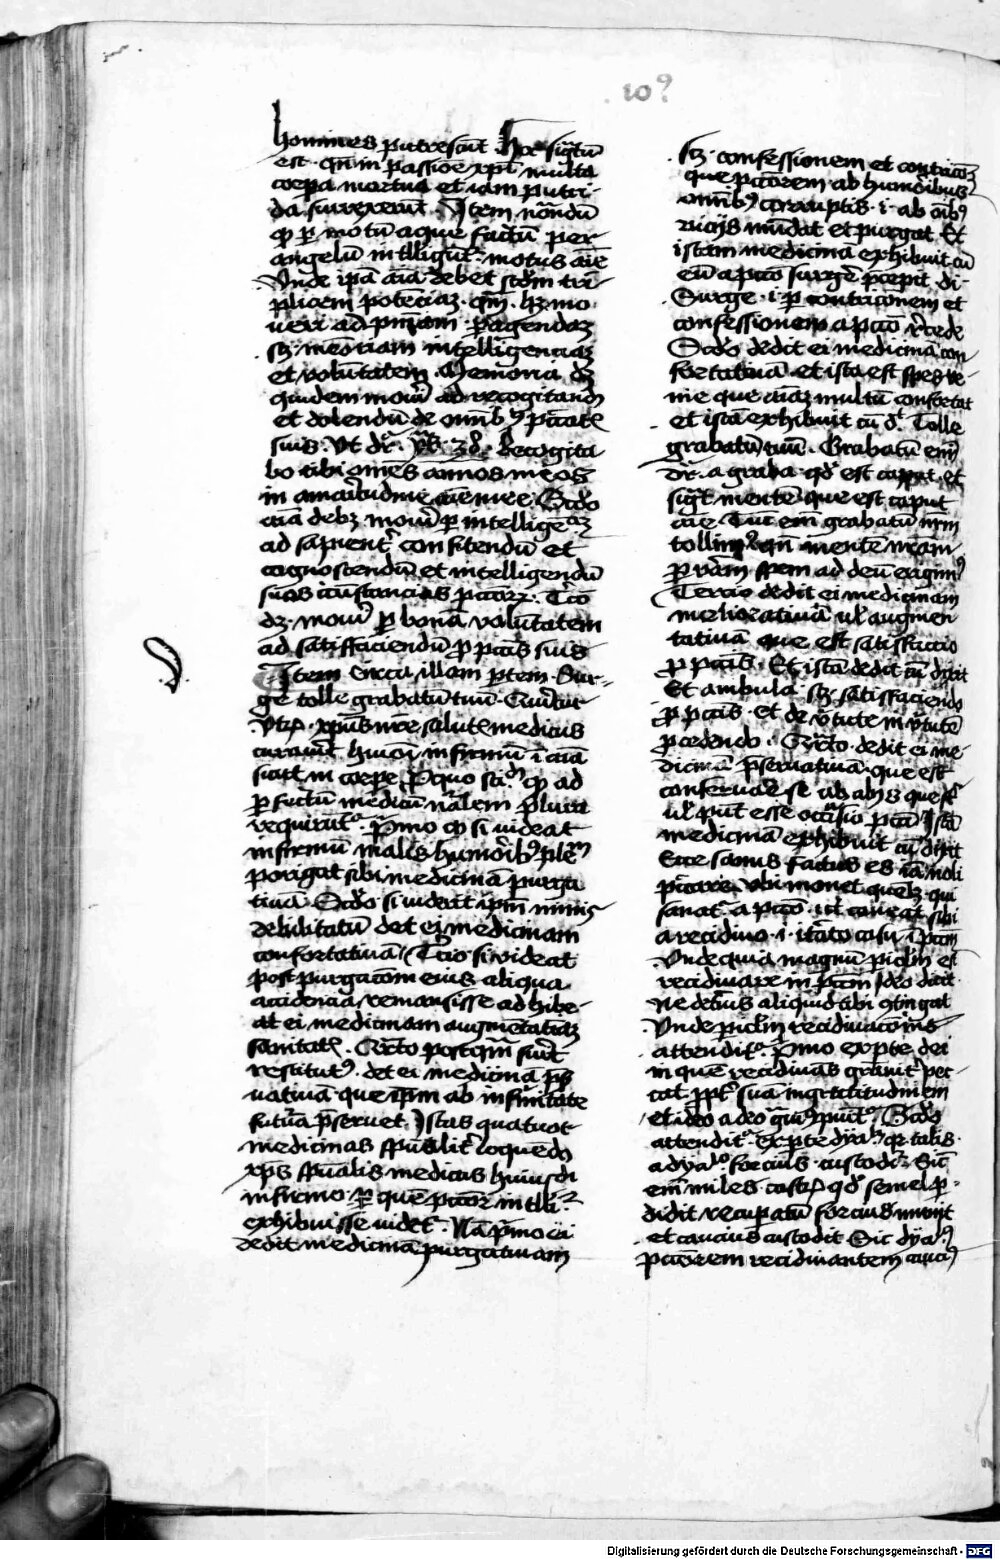 109
homines putrescunt. Hoc signatum
est. qm in passione xpi multa
corpora mortua et iam putri-
da surrexerunt. Item notandum
qd per motum aque factum per
angelum intelligitur motus anie
Unde ipsa aia debet secdm tri-
plicem potenciam qm habet mo
veri ad pniam peragendam
scz memoriam intelligenciam
et voluntatem Memoria debet
quidem moveri ad recogitandum
et dolendum de omnibus peccatis
suis. Ut dr. ys 38. Recogita-
bo tibi omnes annos meos
in amaritudine aie mee. Scdo
aia debet moveri per intelligenciam
ad sapienter confitendum et
cognoscendum et intelligendum
suas circumstancias peccatorum. Tcio
debet moveri per bonam voluntatem
ad satisfaciendum pro peccatis suis
Item circa illam partem Sur-
ge tolle grabatum tuum.
xpus nre salutis medicus
huiusmodi infirmum i aiam
sicut in corpore. Pro quo sciendum qd ad
perfectum medicum naturalem plura
requirunt. Primo qd si videat
infirmum malis humoribus plenum
porrigat sibi medicinam purga
tivam. Secdo si videat ipm nimis
debilitatum det ei medicinam
confortativam. Tcio si videat
post purgacionem eius aliqua
accidencia remansisse adhibe-
at ei medicinam augmentativam
sanitatis. Quarto postquam fuerit
restitutus. det ei medicinam pser
vativam que ipm ab infirmitate
futura preservet. Istas quatuor
medicinas spiritualiter loquendo
xps spiritualis medicus huiusmodi
infirmo per quem peccator intelligitur
exhibuisse videtur. Nam primo ei
dedit medicinam purgativam
scz. confessionem et contricionem
que peccatorem ab humoribus
omnibus corruptis .i. ab omnibus
viciis mundat et purgat. Et
istam medicinam exhibuit cum
eum a peccato surgere precepit. di-
Surge .i. per contricionem et
confessionem a peccato recede
Secdo dedit ei medicinam con-
fortativam et ista est spes ve-
nie que aiam multum confortat
et istam exhibuit cum dixit Tolle
grabatum tuum. Grabatum enim
dr. a graba qd est caput et
significat mentem que est caput
aie Tunc enim grabatum nrm
tollimus quando mentem nram
per veram spem ad deum erigimus
Tercio dedit ei medicinam
meliorativam vel augmen
tativam que est satisfaccio
pro peccatis. Et istam dedit cum dixit
Et ambula scz satisfaciendo
pro peccatis. et de virtute in virtutem
procedendo. Quarto dedit ei me-
dicinam preservativam que est
conservare se ab aliis que sunt
vel possunt esse occasio peccati Istam
medicinam exhibuit cum dixit
Ecce sanus factus es iam noli
peccare. Ubi monet quemlibet qui
sanatur a peccato ut caveat sibi
a recidivo .i. iterato casu in peccatum
Unde quia magnum periculum est
recidivare in peccatum Ideo dicit
Ne deterius aliquid tibi contingat
Unde periculum recidivacionis
attenditur. Primo ex parte dei
in quem recidivans gravius pec-
cat propter suam ingratitudinem
et ideo a deo gravius punitur. Secdo
attenditur. ex parte dyaboli quia talis
a dyabolo forcius custoditur. Sicut
enim miles castrum qd semel per-
didit recuperatum forcius munit
et caucius custodit Sic dyabolus
peccatorem recidivantem caucius